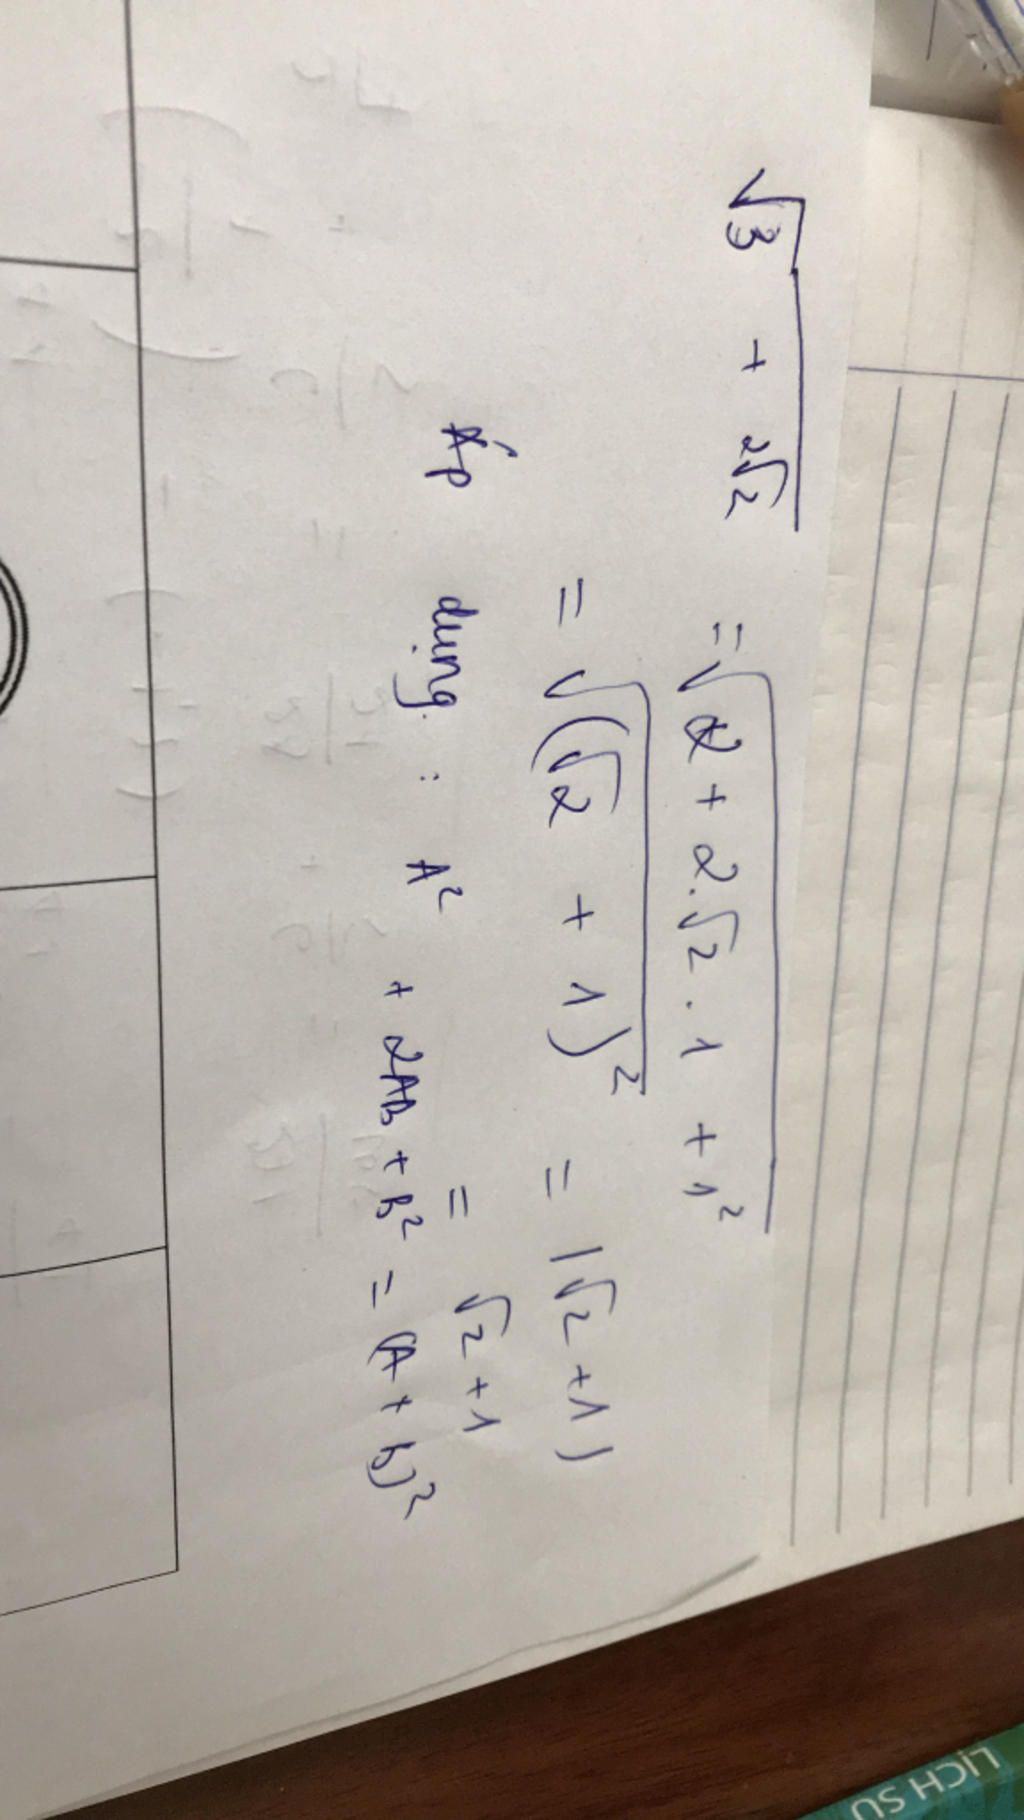 √3 + 2√2 = √2 + 2.√2 . 1 + 1²
= √(√2 + 1)² = |√2 + 1|
= √2 + 1
Áp dụng : A² + 2AB + B² = (A + B)²
LỊCH SỬ